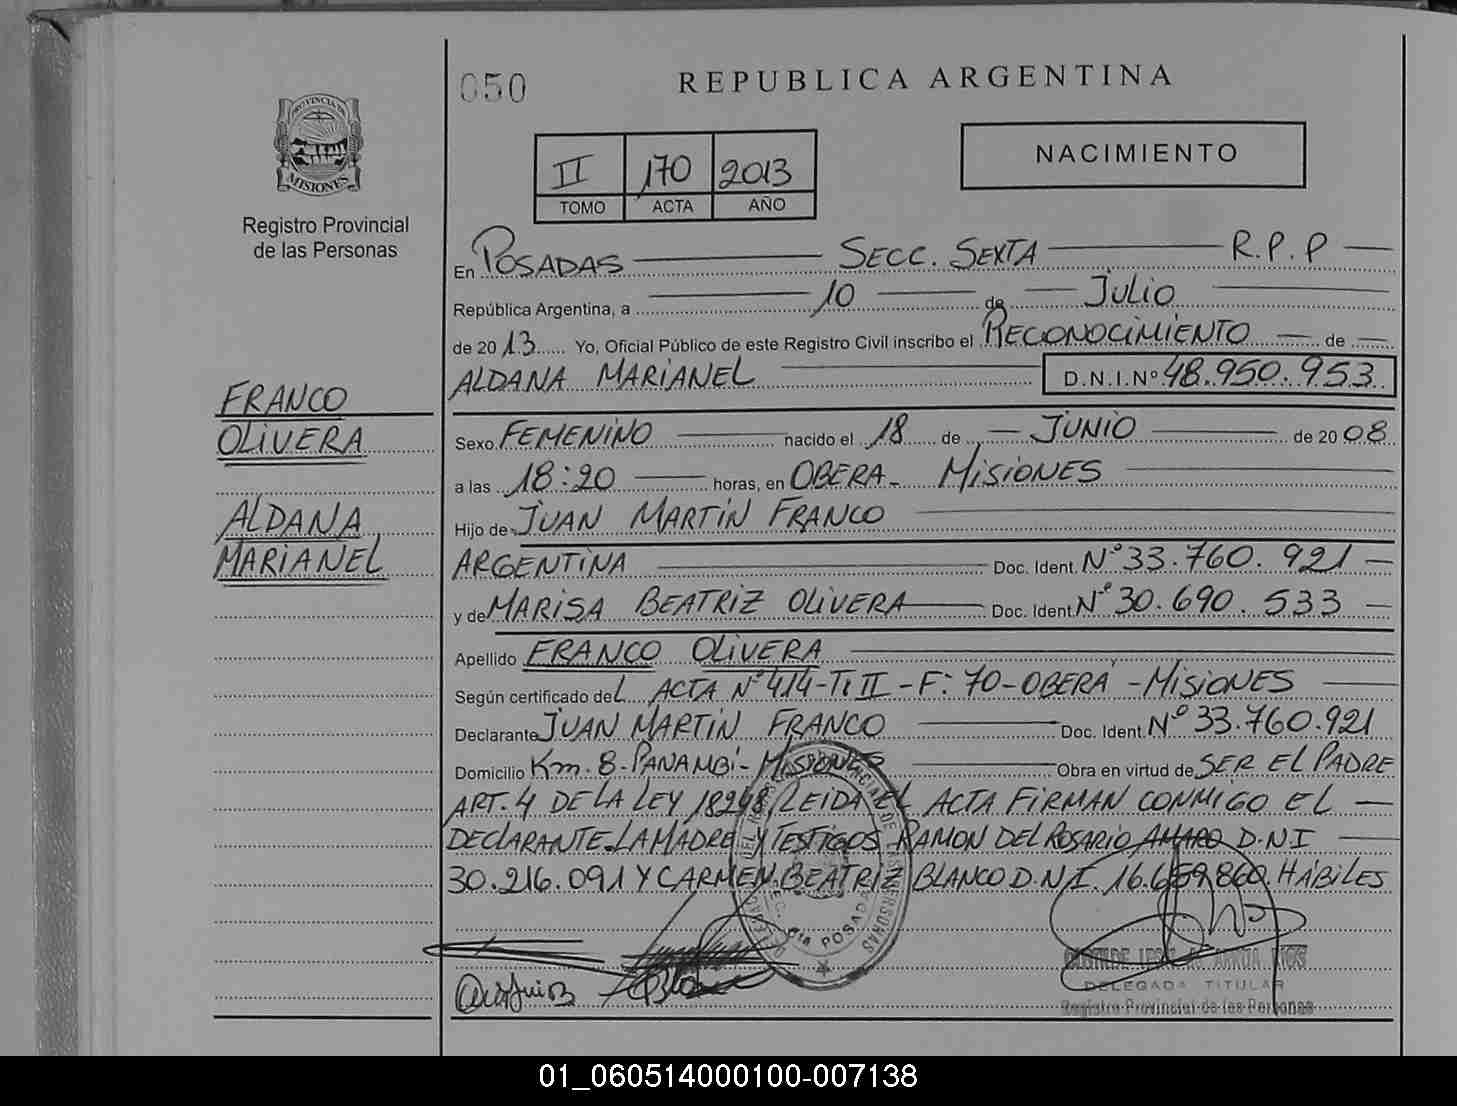 PROVINCIA DE
MISIONES
Registro Provincial
de las Personas
FRANCO
OLIVERA
ALDANA
MARIANEL
050
REPUBLICA ARGENTINA
II 170 2013
TOMO ACTA AÑO
NACIMIENTO
En POSADAS SECC. SEXTA R.P.P
República Argentina, a 10 de JULIO
de 20 13 Yo, Oficial Público de este Registro Civil inscribo el RECONOCIMIENTO de
ALDANA MARIANEL D.N.I.Nº 48.950.953
Sexo FEMENINO nacido el 18 de JUNIO de 20 08
a las 18:20 horas, en OBERA - MISIONES
Hijo de JUAN MARTIN FRANCO
ARGENTINA Doc. Ident. Nº 33.760.921
y de MARISA BEATRIZ OLIVERA Doc. Ident. Nº 30.690.533
Apellido FRANCO OLIVERA
Según certificado del ACTA Nº 414-T: II - F: 70 - OBERÁ - MISIONES
Declarante JUAN MARTIN FRANCO Doc. Ident. Nº 33.760.921
Domicilio Km. 8 - PANAMBI - MISIONES Obra en virtud de SER EL PADRE
ART. 4 DE LA LEY 18248 LEIDA EL ACTA FIRMAN CONMIGO EL
DECLARANTE. LA MADRE Y TESTIGOS RAMON DEL ROSARIO AMARO D.N.I
30.216.091 Y CARMEN BEATRIZ BLANCO D.N.I. 16.659.860. HÁBILES
DELEGADA TITULAR
Registro Provincial de las Personas
01_060514000100-007138